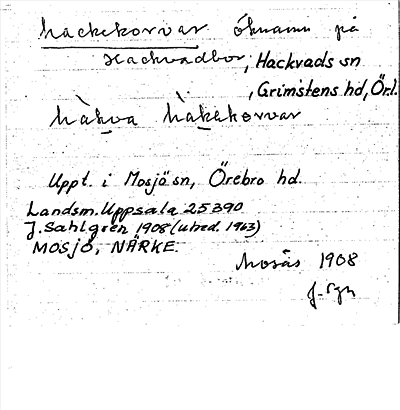 hackekorvar öknamn på
Hackvadbor, Hackvads sn
, Grimstens hd, Örl.
hàkva hàkekorvar
Uppt. i Mosjö sn, Örebro hd.
Landsm. Uppsala 25390
J. Sahlgren 1908 (utred. 1963)
MOSJÖ, NÄRKE.
Mosås 1908
J. Sgn